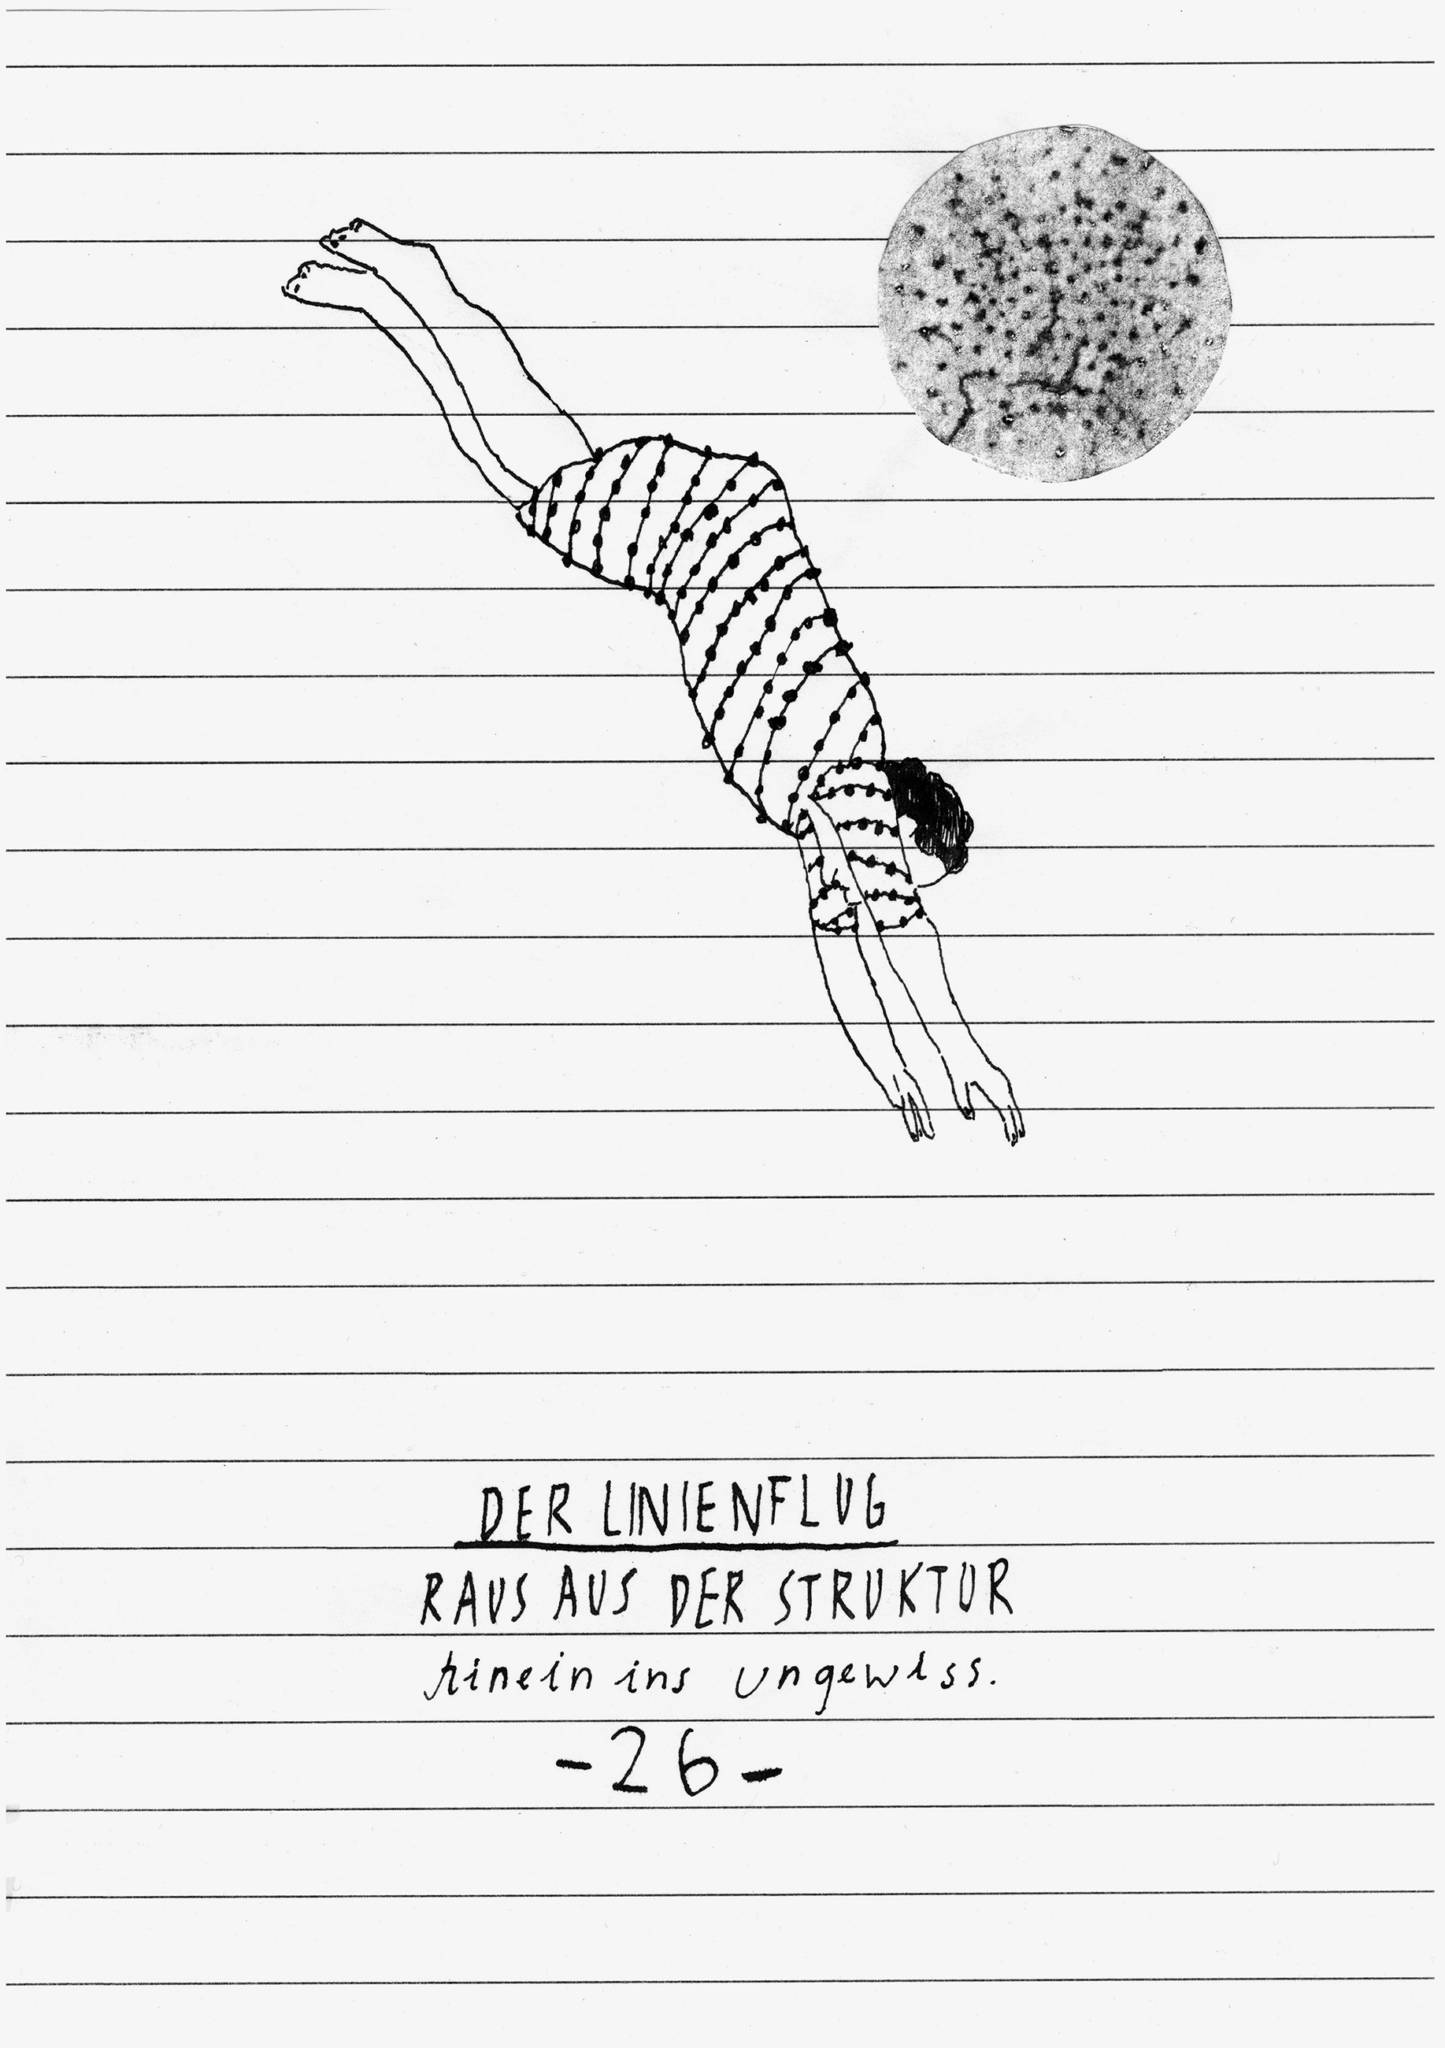 DER LINIENFLUG
RAUS AUS DER STRUKTUR
hinein ins ungewiss.
-26-